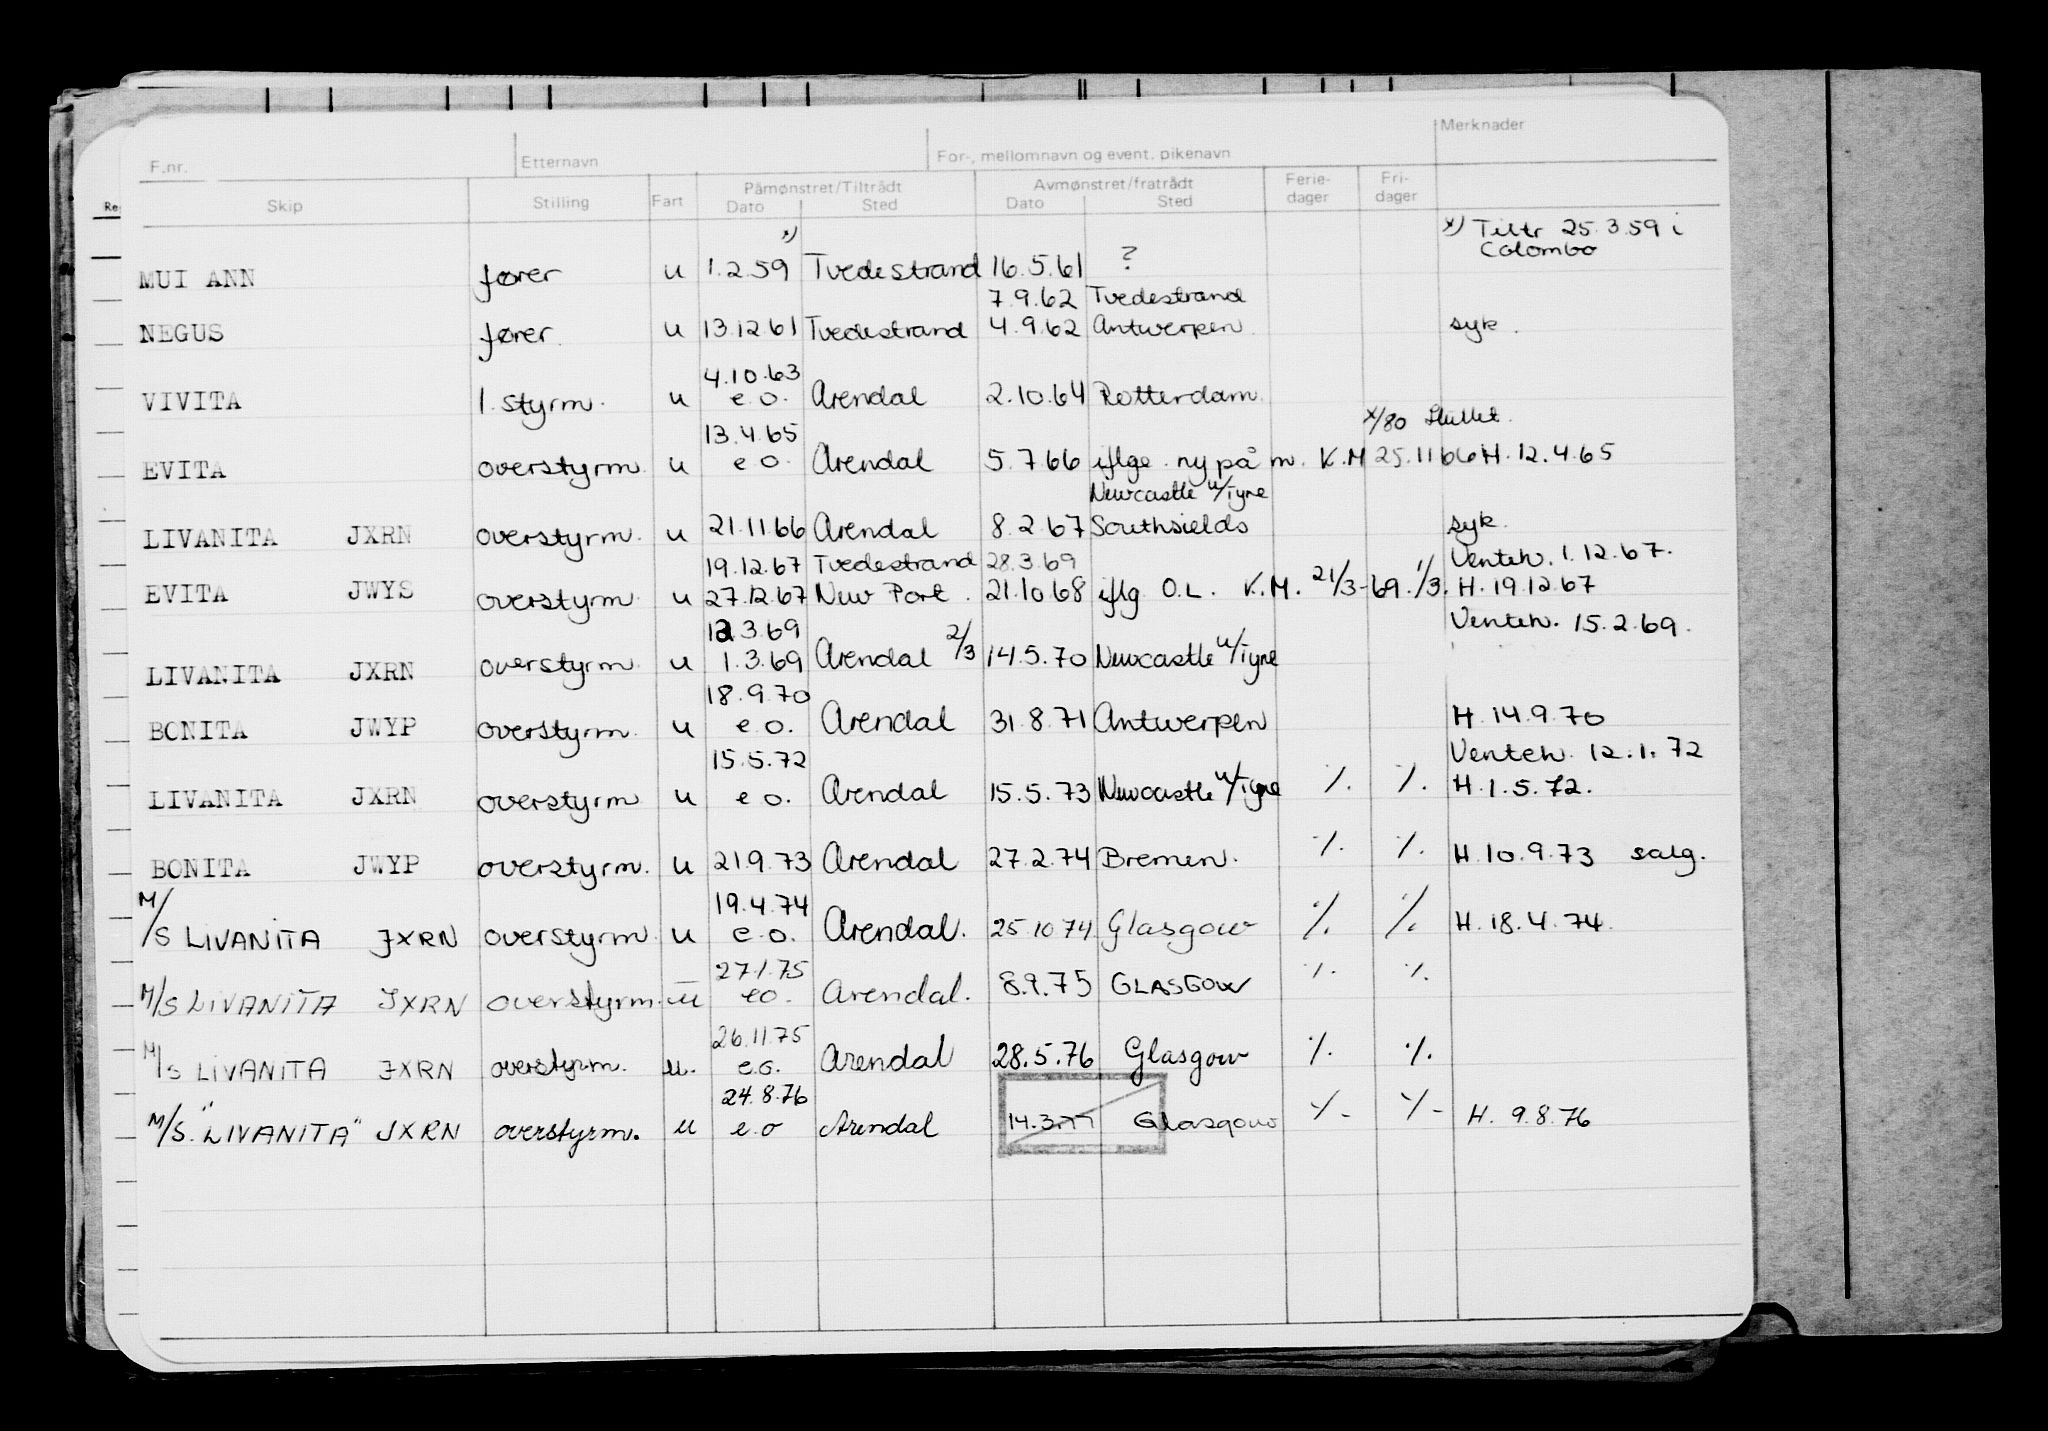 F.nr. Etternavn For-, mellomnavn og event. pikenavn Merknader
Skip Stilling Fart Påmønstret/Tiltrådt Avmønstret/fratrådt Ferie-dager Fri-dager
Dato Sted Dato Sted
x) x) Tiltr 25.3.59 i
Colombo
MUI ANN fører u 1.2.59 Tvedestrand 16.5.61 ?
7.9.62 Tvedestrand
NEGUS fører u 13.12.61 Tvedestrand 4.9.62 Antwerpen syk.
4.10.63
VIVITA 1. styrm. u e.o. Arendal 2.10.64 Rotterdam
13.4.65 x/80
EVITA overstyrm. u e.o. Arendal 5.7.66 iflge. ny på m. K.M 25.11.66 H. 12.4.65
Newcastle u/Tyne
LIVANITA JXRN overstyrm. u 21.11.66 Arendal 8.2.67 Southsields syk.
19.12.67 Tvedestrand 28.3.69 Venteh. 1.12.67.
EVITA JWYS overstyrm. u 27.12.67 New Port. 21.10.68 iflg O.L. K.M. 21/3-69. 1/3. H. 19.12.67
12.3.69 Venteh. 15.2.69.
LIVANITA JXRN overstyrm. u 1.3.69 Arendal 2/3 14.5.70 Newcastle u/Tyne
18.9.70
BONITA JWYP overstyrm. u e.o. Arendal 31.8.71 Antwerpen H. 14.9.70
15.5.72 Venteh. 12.1.72
LIVANITA JXRN overstyrm u e.o. Arendal 15.5.73 Newcastle u/Tyne ./. ./. H. 1.5.72.
BONITA JWYP overstyrm. u 21.9.73 Arendal 27.2.74 Bremen. ./. ./. H. 10.9.73 salg.
19.4.74
M/S LIVANITA JXRN overstyrm. u e.o. Arendal. 25.10.74. Glasgow ./. ./. H. 18.4.74.
27.1.75
M/S LIVANITA JXRN overstyrm. u eo. Arendal. 8.9.75 GLASGOW ./. ./.
26.11.75
M/S LIVANITA JXRN overstyrm. u. e.o. Arendal 28.5.76 Glasgow ./. ./.
24.8.76
M/S. "LIVANITA" JXRN overstyrm. u e.o Arendal 14.3.77 Glasgow ./- ./- H. 9.8.76